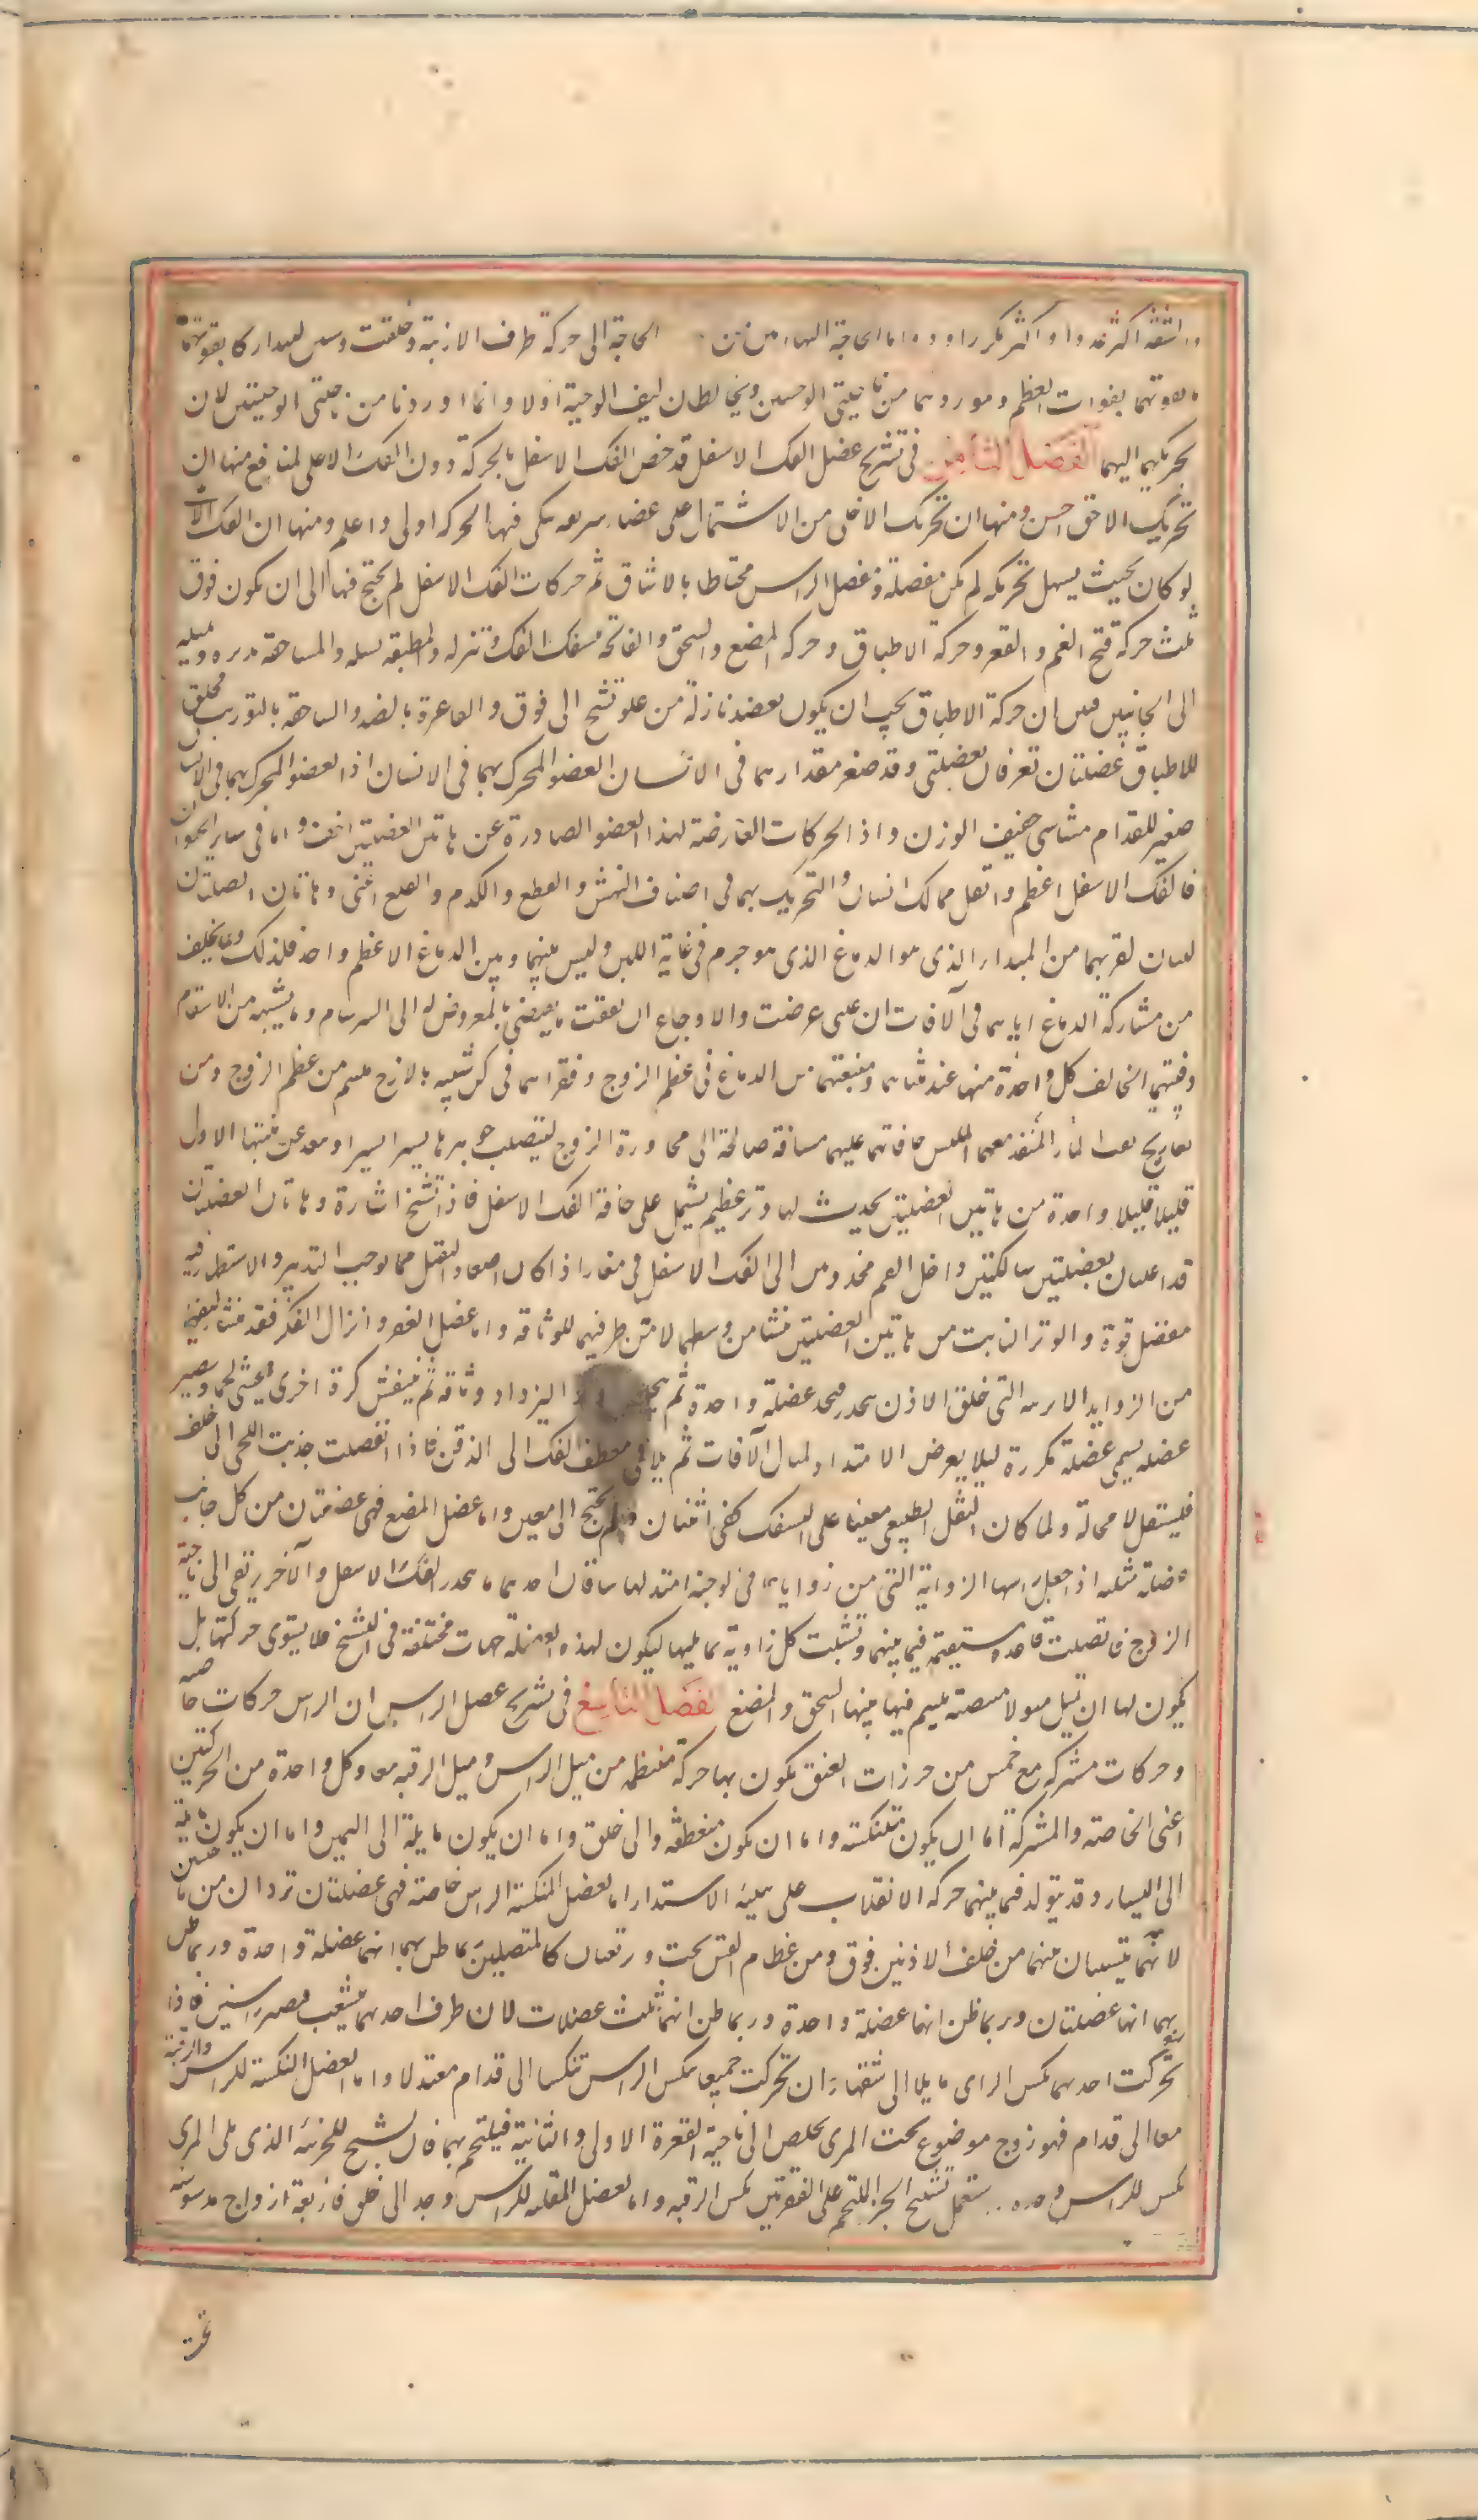 والشفة اكثر عددا واكثر تكررا ودواما الحاجة اليها من الحاجة الى حركة طرف الارنبة وخلقت قوية ليتدارك بقوتها
بقوتهما بفوات العظم وموردهما من ناحيتى الوجنتين ويخالطان ليف الوجنة اولا وانما وردتا من ناحيتى الوجنتين لان
تحريكهما اليهما الفصل الثامن فى تشريح عضل الفك الاسفل قد خص الفك الاسفل بالحركة دون الفك الاعلى لمنافع منها ان
تحريك الاخف احسن ومنها ان تحريك الاخلى من الاشتمال على اعضاء شريفة تنكى فيها الحركة اولى واسلم ومنها ان الفك الاعلى
لو كان بحيث يسهل تحريكه لم يكن مفصله ومفصل الراس محتاطا بالايثاق ثم حركات الفك الاسفل لم يحتج فيها الى ان يكون فوق
ثلث حركة فتح الفم والفغر وحركة الاطباق وحركة المضغ والسحق والفاتحة تسفل الفك وتنزله والمطبقة تشيله والساحقة تديره وتميله
الى الجانبين فبين ان حركة الاطباق يجب ان يكون بعضل نازلة من علو تشنج الى فوق والفاغرة بالضد والساحقة بالتوريب فخلق
للاطباق عضلتان تعرفان بعضلتى وقد صغر مقدارهما فى الانسان العضو المحرك بهما فى الانسان اذ العضو المحرك بهما فى الانسان
صغير القدام مشاشى خفيف الوزن واذ الحركات العارضة لهذا العضو الصادرة عن هاتين العضلتين اخف واما فى ساير الحيوان
فالفك الاسفل اعظم واثقل مما للانسان والتحريك بهما فى اصناف النهش والقطع والكدم والقلع اعنى وهاتان العضلتان
لينتان لقربهما من المبدا الذى هو الدماغ الذى هو جرم فى غاية اللين وليس بينهما وبين الدماغ الا عظم واحد فلذلك ولما يخاف
من مشاركة الدماغ اياهما فى الآفات ان عسى عرضت والاوجاع ان اتفقت ما يفضى بالمعروض له الى السرسام وما يشبهه من الاسقام
دفنهما الخالق كل واحدة منها عند منشاهما ومنبعهما من الدماغ فى عظمى الزوج ونفذهما فى كن شبيه بالازج ملتئم من عظمى الزوج ومن
تعاريج ثقب المنفذ معها الملبس حافاتها عليهما مسافة صالحة الى مجاورة الزوج ليتصلب جوهرهما يسيرا يسيرا ويبعد عن منبتها الاول
قليلا قليلا وكل واحدة من هاتين العضلتين يحدث لها وتر عظيم يشتمل على حافة الفك الاسفل فاذا تشنج اشاره وهاتان العضلتان
قد اعينتا بعضلتين سالكتين داخل الفم منحدرتين الى الفك الاسفل فى مغاراذ كان اصعاد الثقيل مما يوجب التدبير والاستظهار فيه
بفضل قوة والوتر النابت من هاتين العضلتين ينشا من وسطهما لا من طرفيهما للوثاقة واما عضل الفغر وانزال الفك فقد ينشا ليفها
من الزوايد الابرية التى خلف الاذن فتتحد عضلة واحدة ثم يتخلص وترا ليزداد وثاقة ثم ينتفش كرة اخرى فيحتشى لحما ويصير
عضلة يسمى عضلة مكررة ليلا يعرض الامتداد لمنال الآفات ثم يلاقى معطف الفك الى الذقن فاذا تقلصت جذبت اللحى الى خلف
فيتسفل لا محالة ولما كان الثقل الطبيعى معينا على التسفل كفى اثنتان ولم يحتج الى معين واما عضل المضغ فهى عضلتان من كل جانب
عضلة مثلثة اذا جعل راسها الزاوية التى من زواياها فى الوجنة امتد لها ساقان احدهما ينحدر الى الفك الاسفل والآخر يرتقى الى ناحية
الزوج فاتصلت قاعدة مستقيمة فيما بينهما وتشبثت كل زاوية بما يليها ليكون لهذه العضلة جهات مختلفة فى التشنج فلا يستوى حركتها بل
يكون لها ان تميل ميولا متفننة يلتئم فيما بينها السحق والمضغ الفصل التاسع فى تشريح عضل الراس ان للراس حركات خاصة
وحركات مشتركة مع خمس من خرزات العنق يكون بها حركة منتظمة من ميل الراس وميل الرقبة معا وكل واحدة من الحركتين
اعنى الخاصة والمشتركة اما ان يكون متنكسة واما ان يكون منعطفة والى خلف واما ان يكون مايلة الى اليمين واما ان يكون مايلة
الى اليسار وقد يتولد فيما بينهما حركة الانقلاب على هيئة الاستدارة اما العضل المنكسة للراس خاصة فهى عضلتان تردان من ناحيتين
لانهما يتشبثان بليفهما من خلف الاذنين فوق ومن عظام القس تحت ويرتقيان كالمتصلتين فظن بهما انهما عضلة واحدة وربما ظن
بهما انها عضلتان وربما ظن انها عضلة واحدة وربما ظن انها ثلث عضلات لان طرف احدهما يتشعب فيصير راسين فاذا
تحركت احدهما تنكس الراس مايلا الى شقها وان تحركت جميعا تنكس الراس تنكسا الى قدام معتدلا واما العضل المنكسة للراس والرقبة
معا الى قدام فهو زوج موضوع تحت المرى يخلص الى ناحية الفقرة الاولى والثانية فيلتحم بهما فان تشنج للجزء الذى يلى المرى
نكس الراس وحده وان استعمل تشنيج الجزء الملتحم على الفقرتين نكس الرقبة واما العضل المقلبة للراس وحده الى خلف فاربعة ازواج مدسوسة
تحت